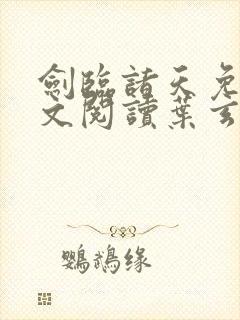 劍臨諸天免
文閱讀葉玄
鸚鵡緣